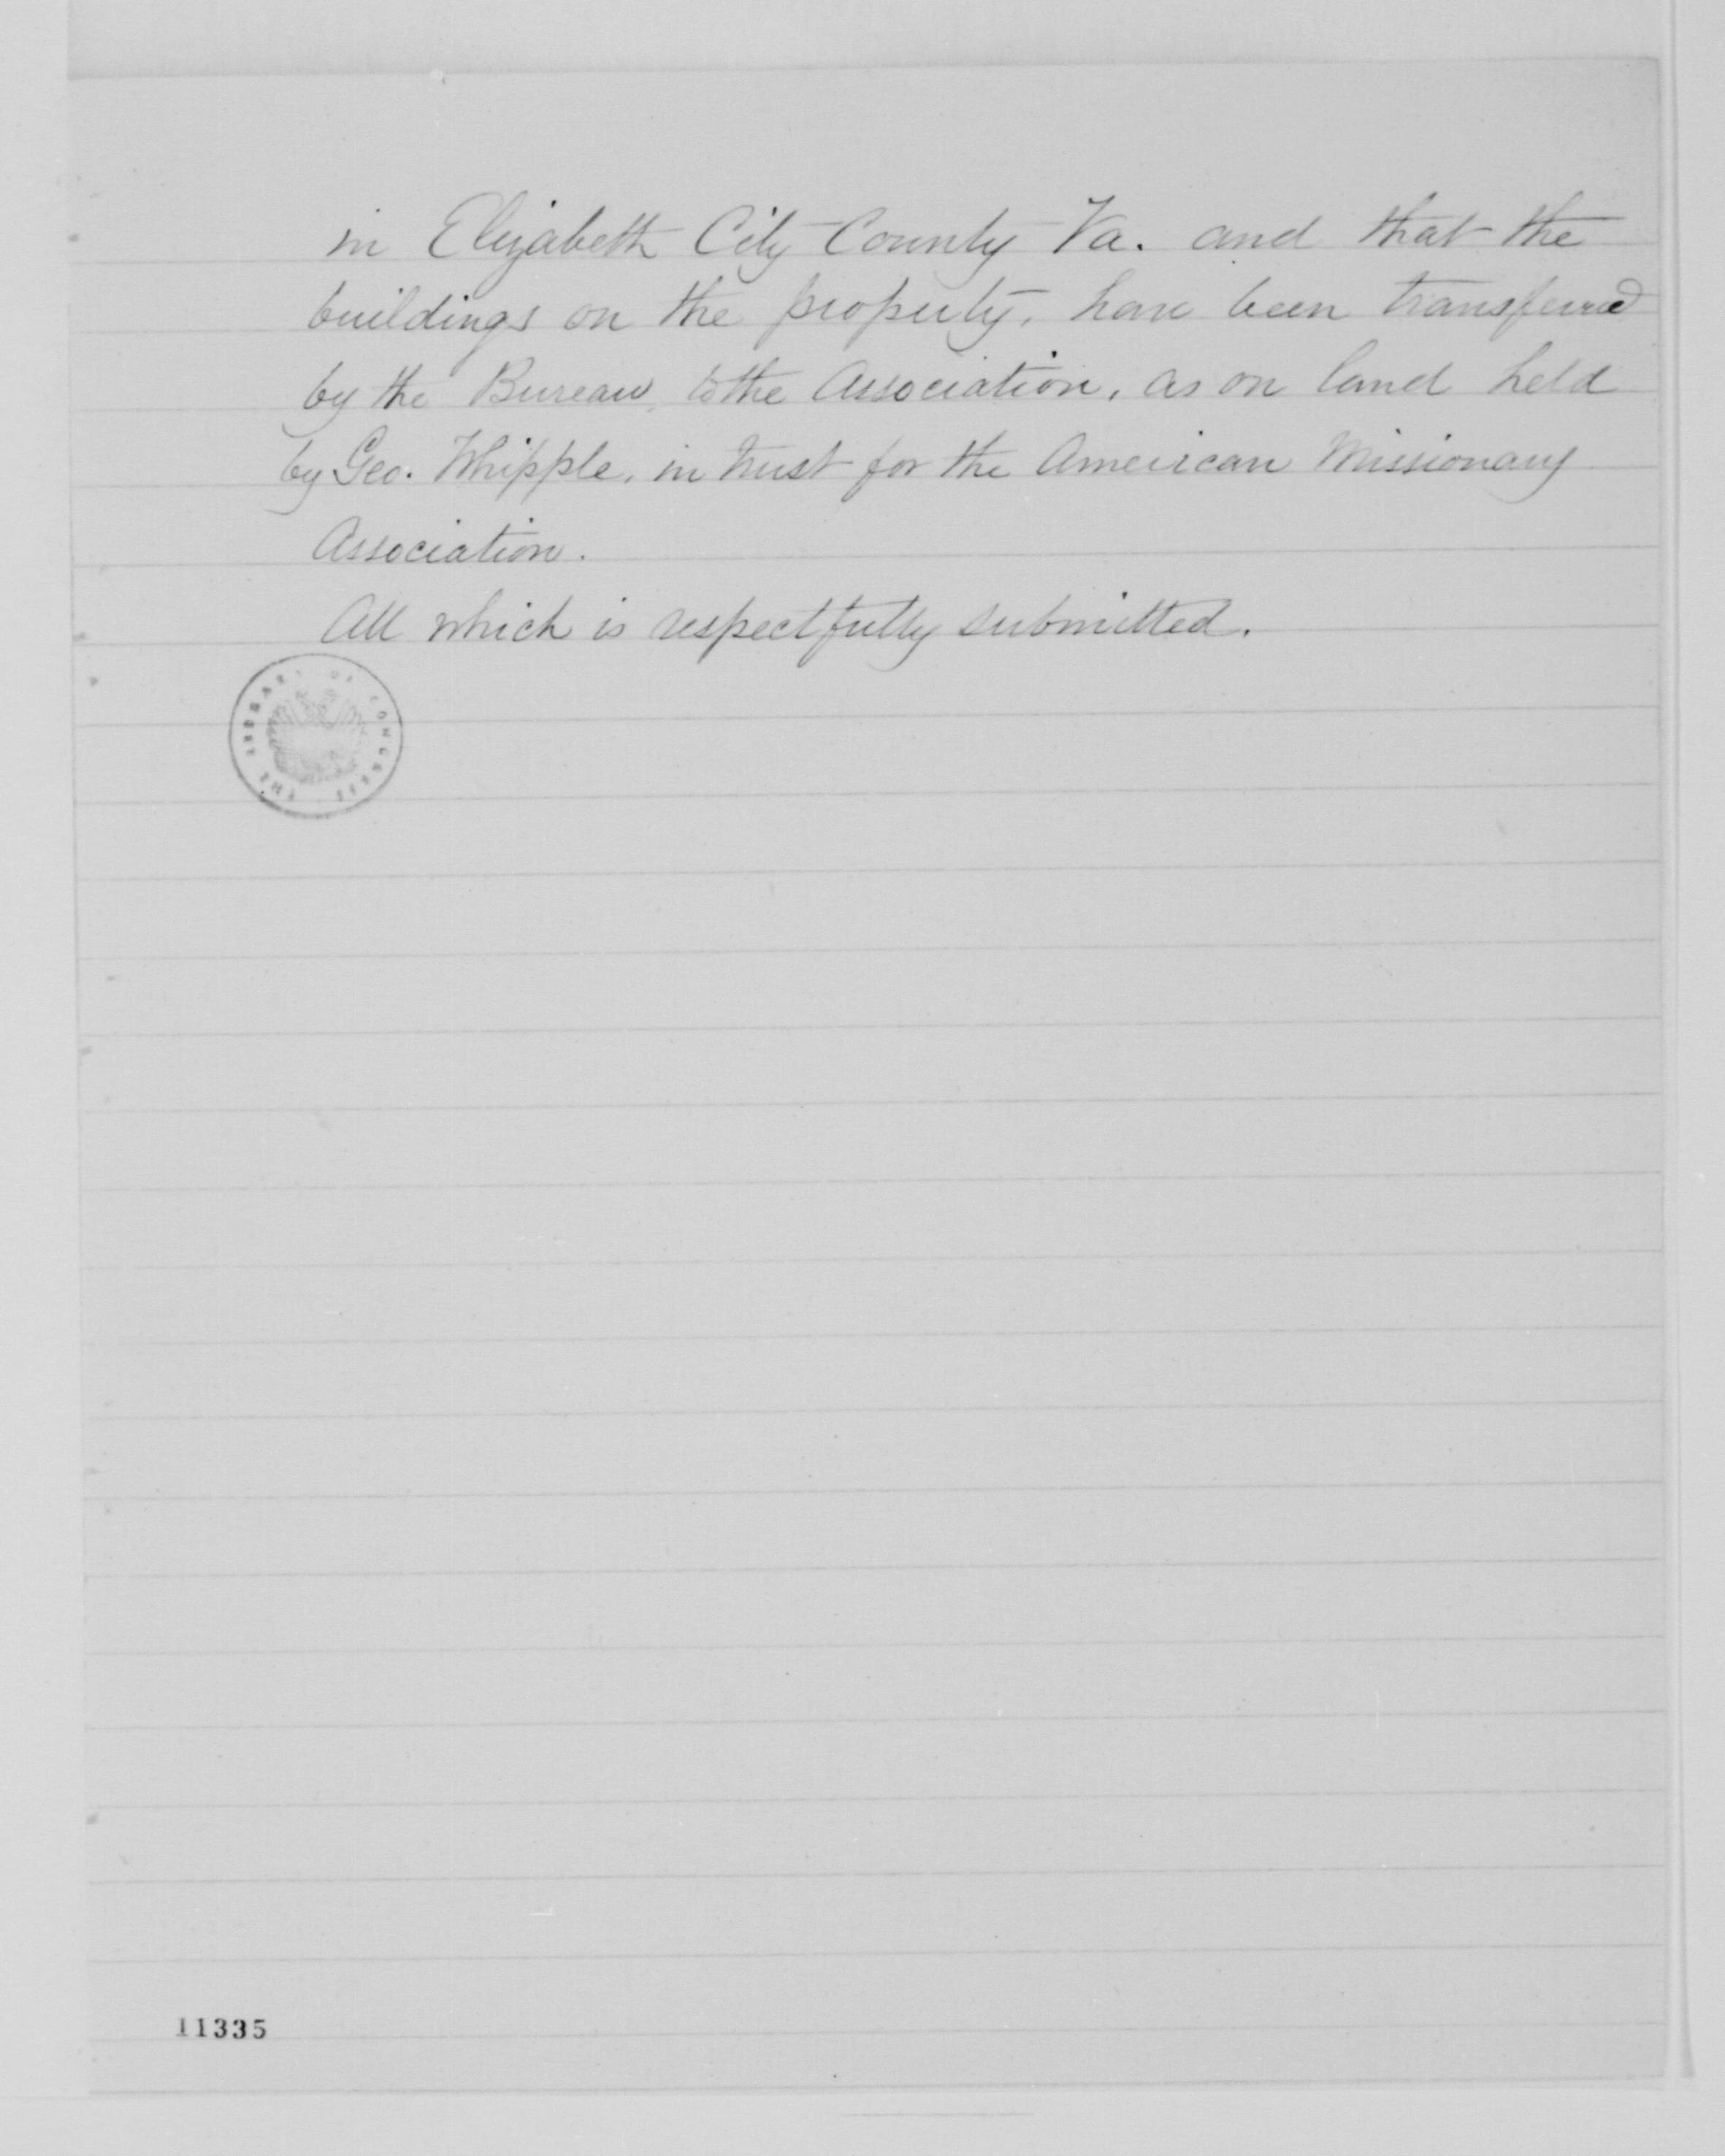 in Elizabeth City County Va. and that the
buildings on the property, have been transferred
by the Bureau, to the Association, as on land held
by Geo. Whipple, in trust for the American Missionary
Association.
All which is respectfully submitted.
THE LIBRARY OF CONGRESS
11335